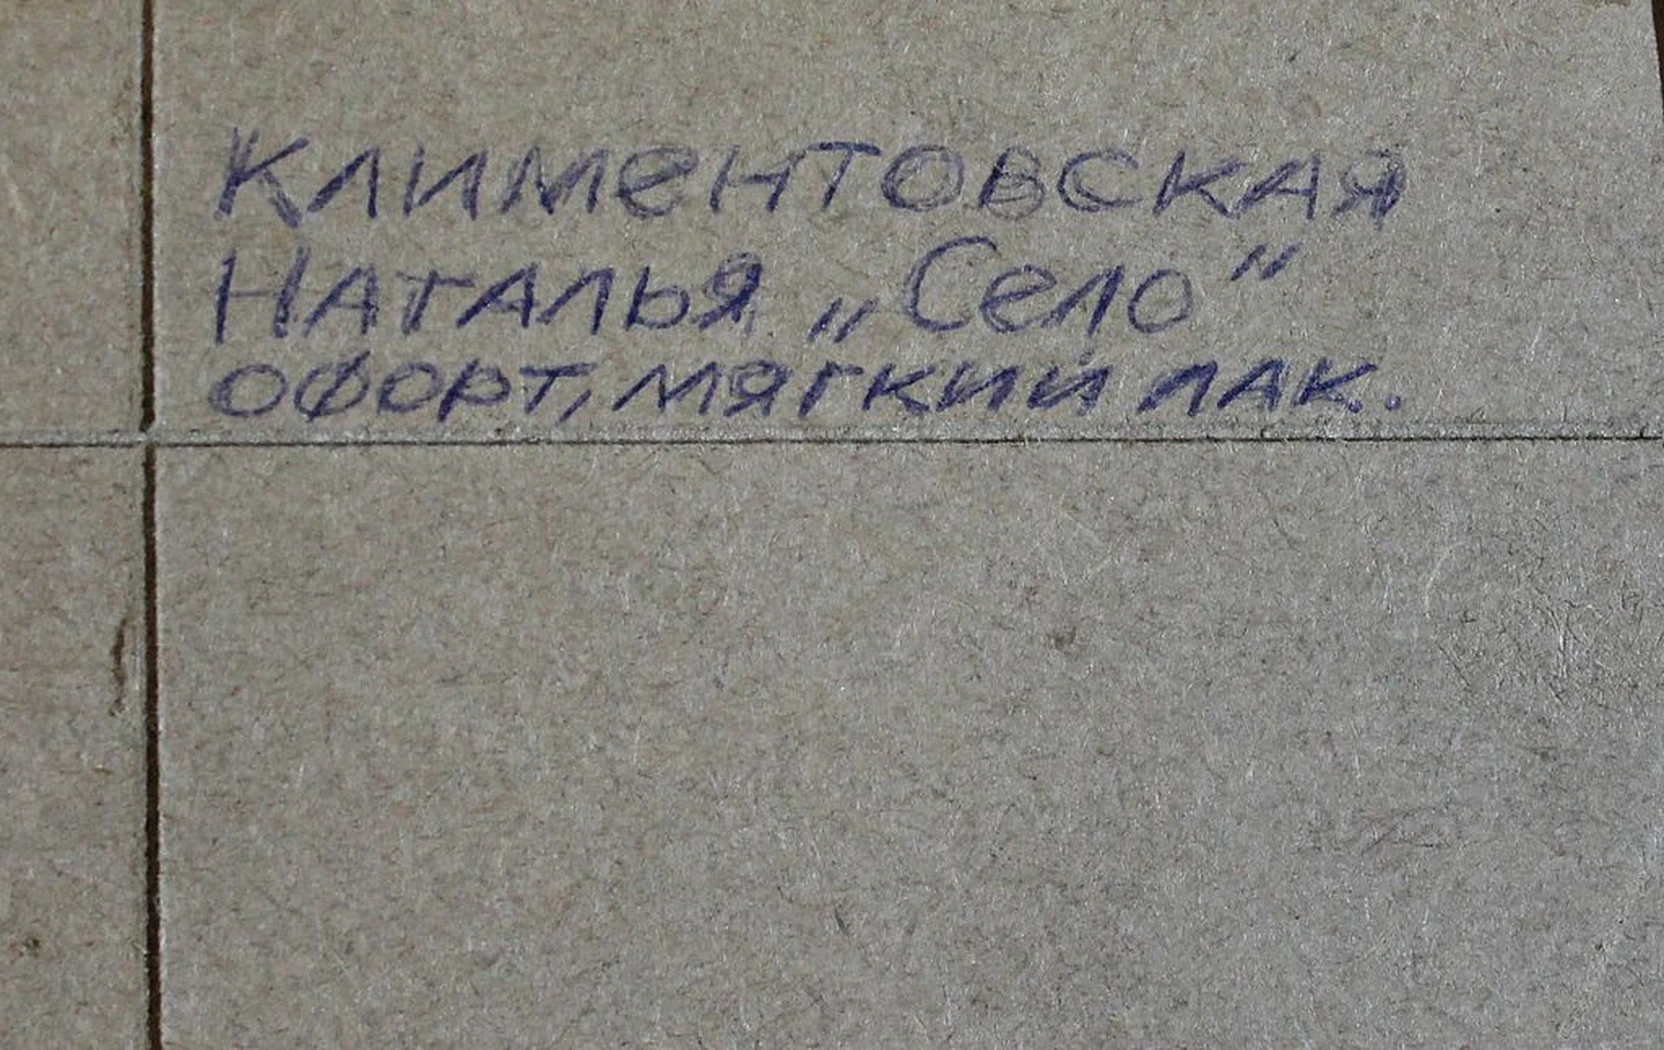 Климентовская
Наталья „Село“
офорт, мягкий лак.